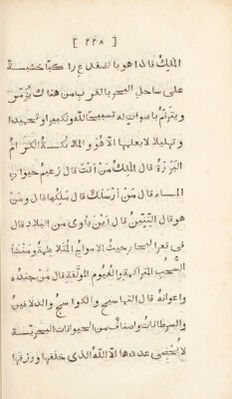 [ ٢٢٨ ]
الملك فاذا هو بالضفدع راكبا خشبة
على ساحل البحر بالقرب من هناك يزمر
ويترنم باصوات له تسبيحا لله وتكبيرا وتحميدا
وتهليلا لا يعلمها الا هو والملائكة الكرام
البررة قال الملك من انت قال زعيم حيوان
الماء قال من ارسلك قال ملكها قال ومن
هو قال التنين قال اين ياوى من البلاد قال
فى قعر البحار حيث الامواج المتلاطمة ومنشأ
السحب المتراكمة والغيوم المولفة قال من جنده
واعوانه قال التماسيح والكواسج والدلافين
والسرطانات واصناف من الحيوانات البحرية
لا يحصى عددها الا الله الذى خلقها ورزقها